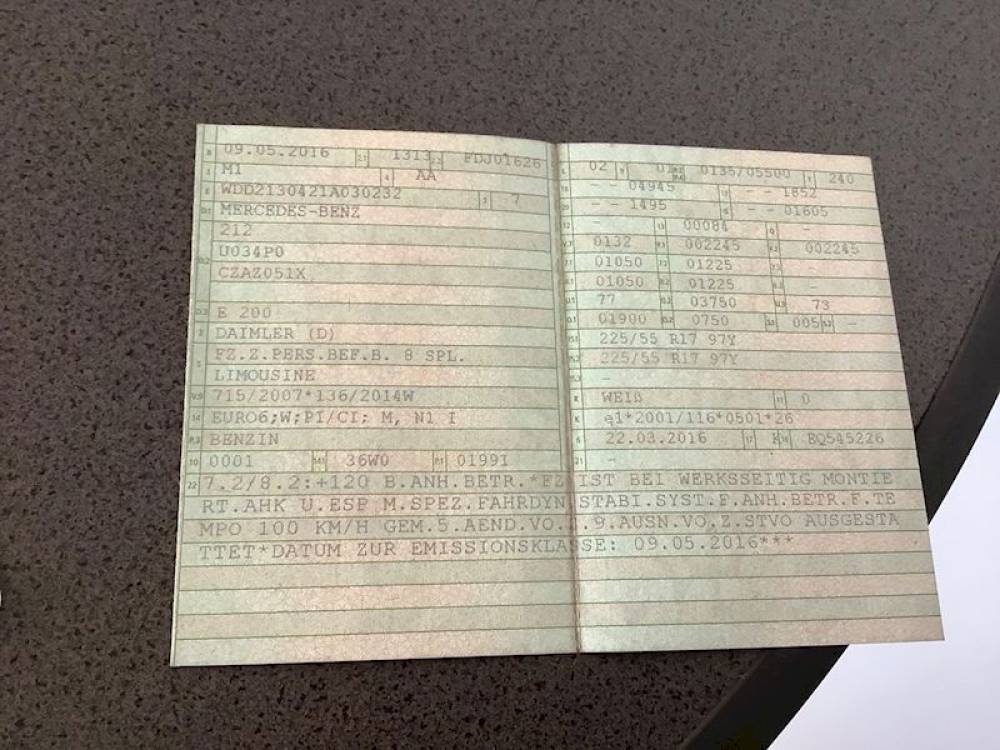 09.05.2016 1313 FDJ01626
M1 AA
WDD2130421A030232 7
MERCEDES-BENZ
212
U034P0
CZAZ051X
E 200
DAIMLER (D)
FZ.Z.PERS.BEF.B. 8 SPL.
LIMOUSINE
715/2007*136/2014W
EURO6;W;PI/CI; M, N1 I
BENZIN
0001 36W0 01991
02 0135/05500 240
- - 04945 - - 1852
- - 1495 - - 01605
- 00084 -
0132 002245 002245
01050 01225 -
01050 01225 -
77 03750 73
01900 0750 005 -
225/55 R17 97Y
225/55 R17 97Y
-
WEIß 0
e1*2001/116*0501*26
22.03.2016 K EQ545226
-
22 7.2/8.2:+120 B.ANH.BETR.*FZ IST BEI WERKSSEITIG MONTIE
RT.AHK U.ESP M.SPEZ.FAHRDYN STABI.SYST.F.ANH.BETR.F.TE
MPO 100 KM/H GEM.5.AEND.VO. 9.AUSN.VO.Z.STVO AUSGESTA
TTET*DATUM ZUR EMISSIONSKLASSE: 09.05.2016***